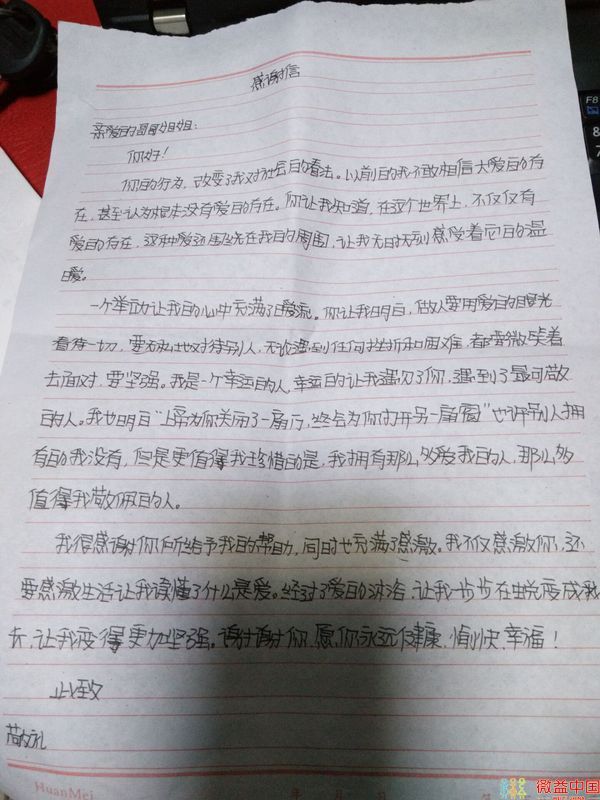 感谢信
亲爱的哥哥姐姐：
你好！
你的行为，改变了我对社会的看法。以前的我不敢相信大爱的存
在，甚至认为根本没有爱的存在。你让我知道，在这个世界上，不仅仅有
爱的存在，这种爱还围绕在我的周围，让我无时无刻感受着它的温
暖。
一个举动让我的心中充满了暖流。你让我明白，做人要用爱的眼光
看待一切，要无私地对待别人，无论遇到任何挫折和困难，都要微笑着
去面对，要坚强。我是一个幸运的人，幸运的让我遇见了你，遇到了最可敬
的人。我也明白“上帝为你关闭了一扇门，终会为你打开另一扇窗”也许别人拥
有的我没有，但是更值得我珍惜的是，我拥有那么多爱我的人，那么多
值得我敬佩的人。
我很感谢你们所给予我的帮助，同时也充满了感激。我不仅感激你们，还
要感激生活让我读懂了什么是爱。经过了爱的沐浴，让我一步步在蜕变成
长，让我变得更加坚强。谢谢你，愿你永远健康，愉快，幸福！
此致
敬礼
HuanMei
年 月 日
F8
8
微益中国